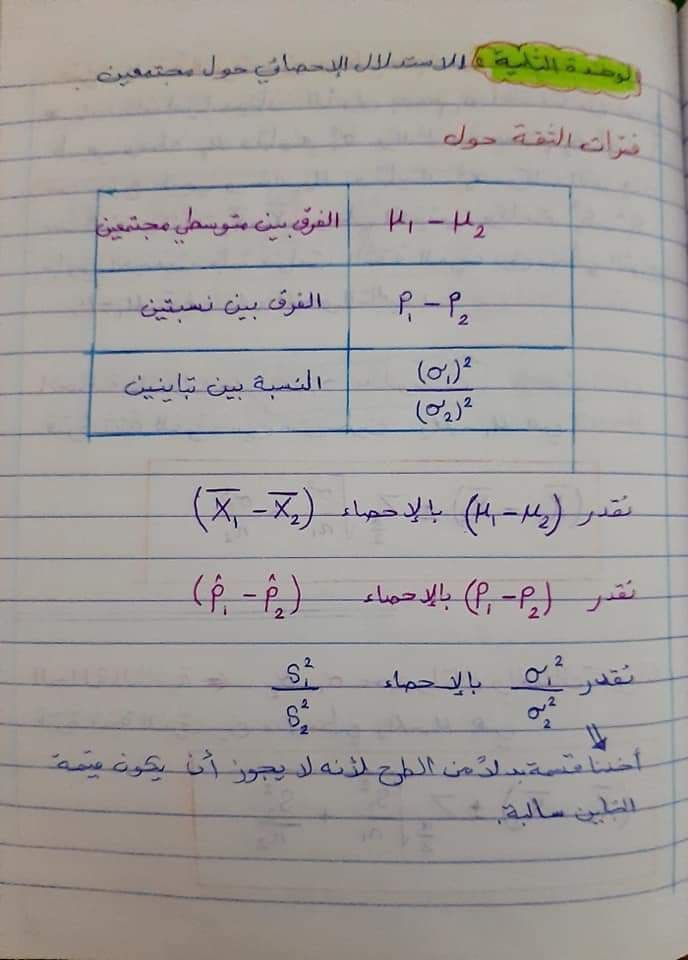 لوحدة الثانية : الاستدلال الإحصائي حول مجتمعين.
فترات الثقة حول
μ₁ - μ₂ الفرق بين متوسطي مجتمعين
P₁ - P₂ الفرق بين نسبتين
(σ₁)²/(σ₂)² النسبة بين تباينين
نقدر (μ₁ - μ₂) بالإحصاء (X̄₁ - X̄₂)
نقدر (P₁ - P₂) بالإحصاء (P̂₁ - P̂₂)
نقدر σ₁²/σ₂² بالإحصاء S₁²/S₂²
⇓
أخذنا قسمة بدلاً من الطرح لأنه لا يجوز أن يكون قيمة
التباين سالبة.